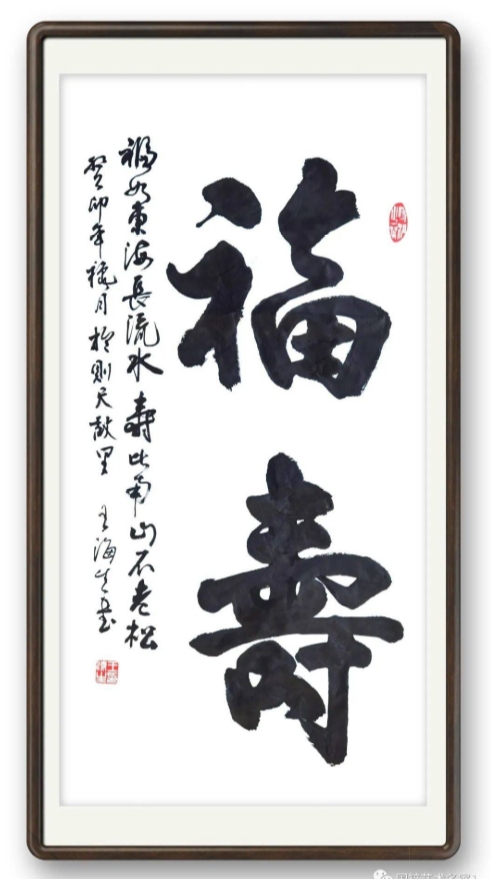 福壽
福如東海長流水 壽比南山不老松
癸卯年 月於則天故里 王海生書